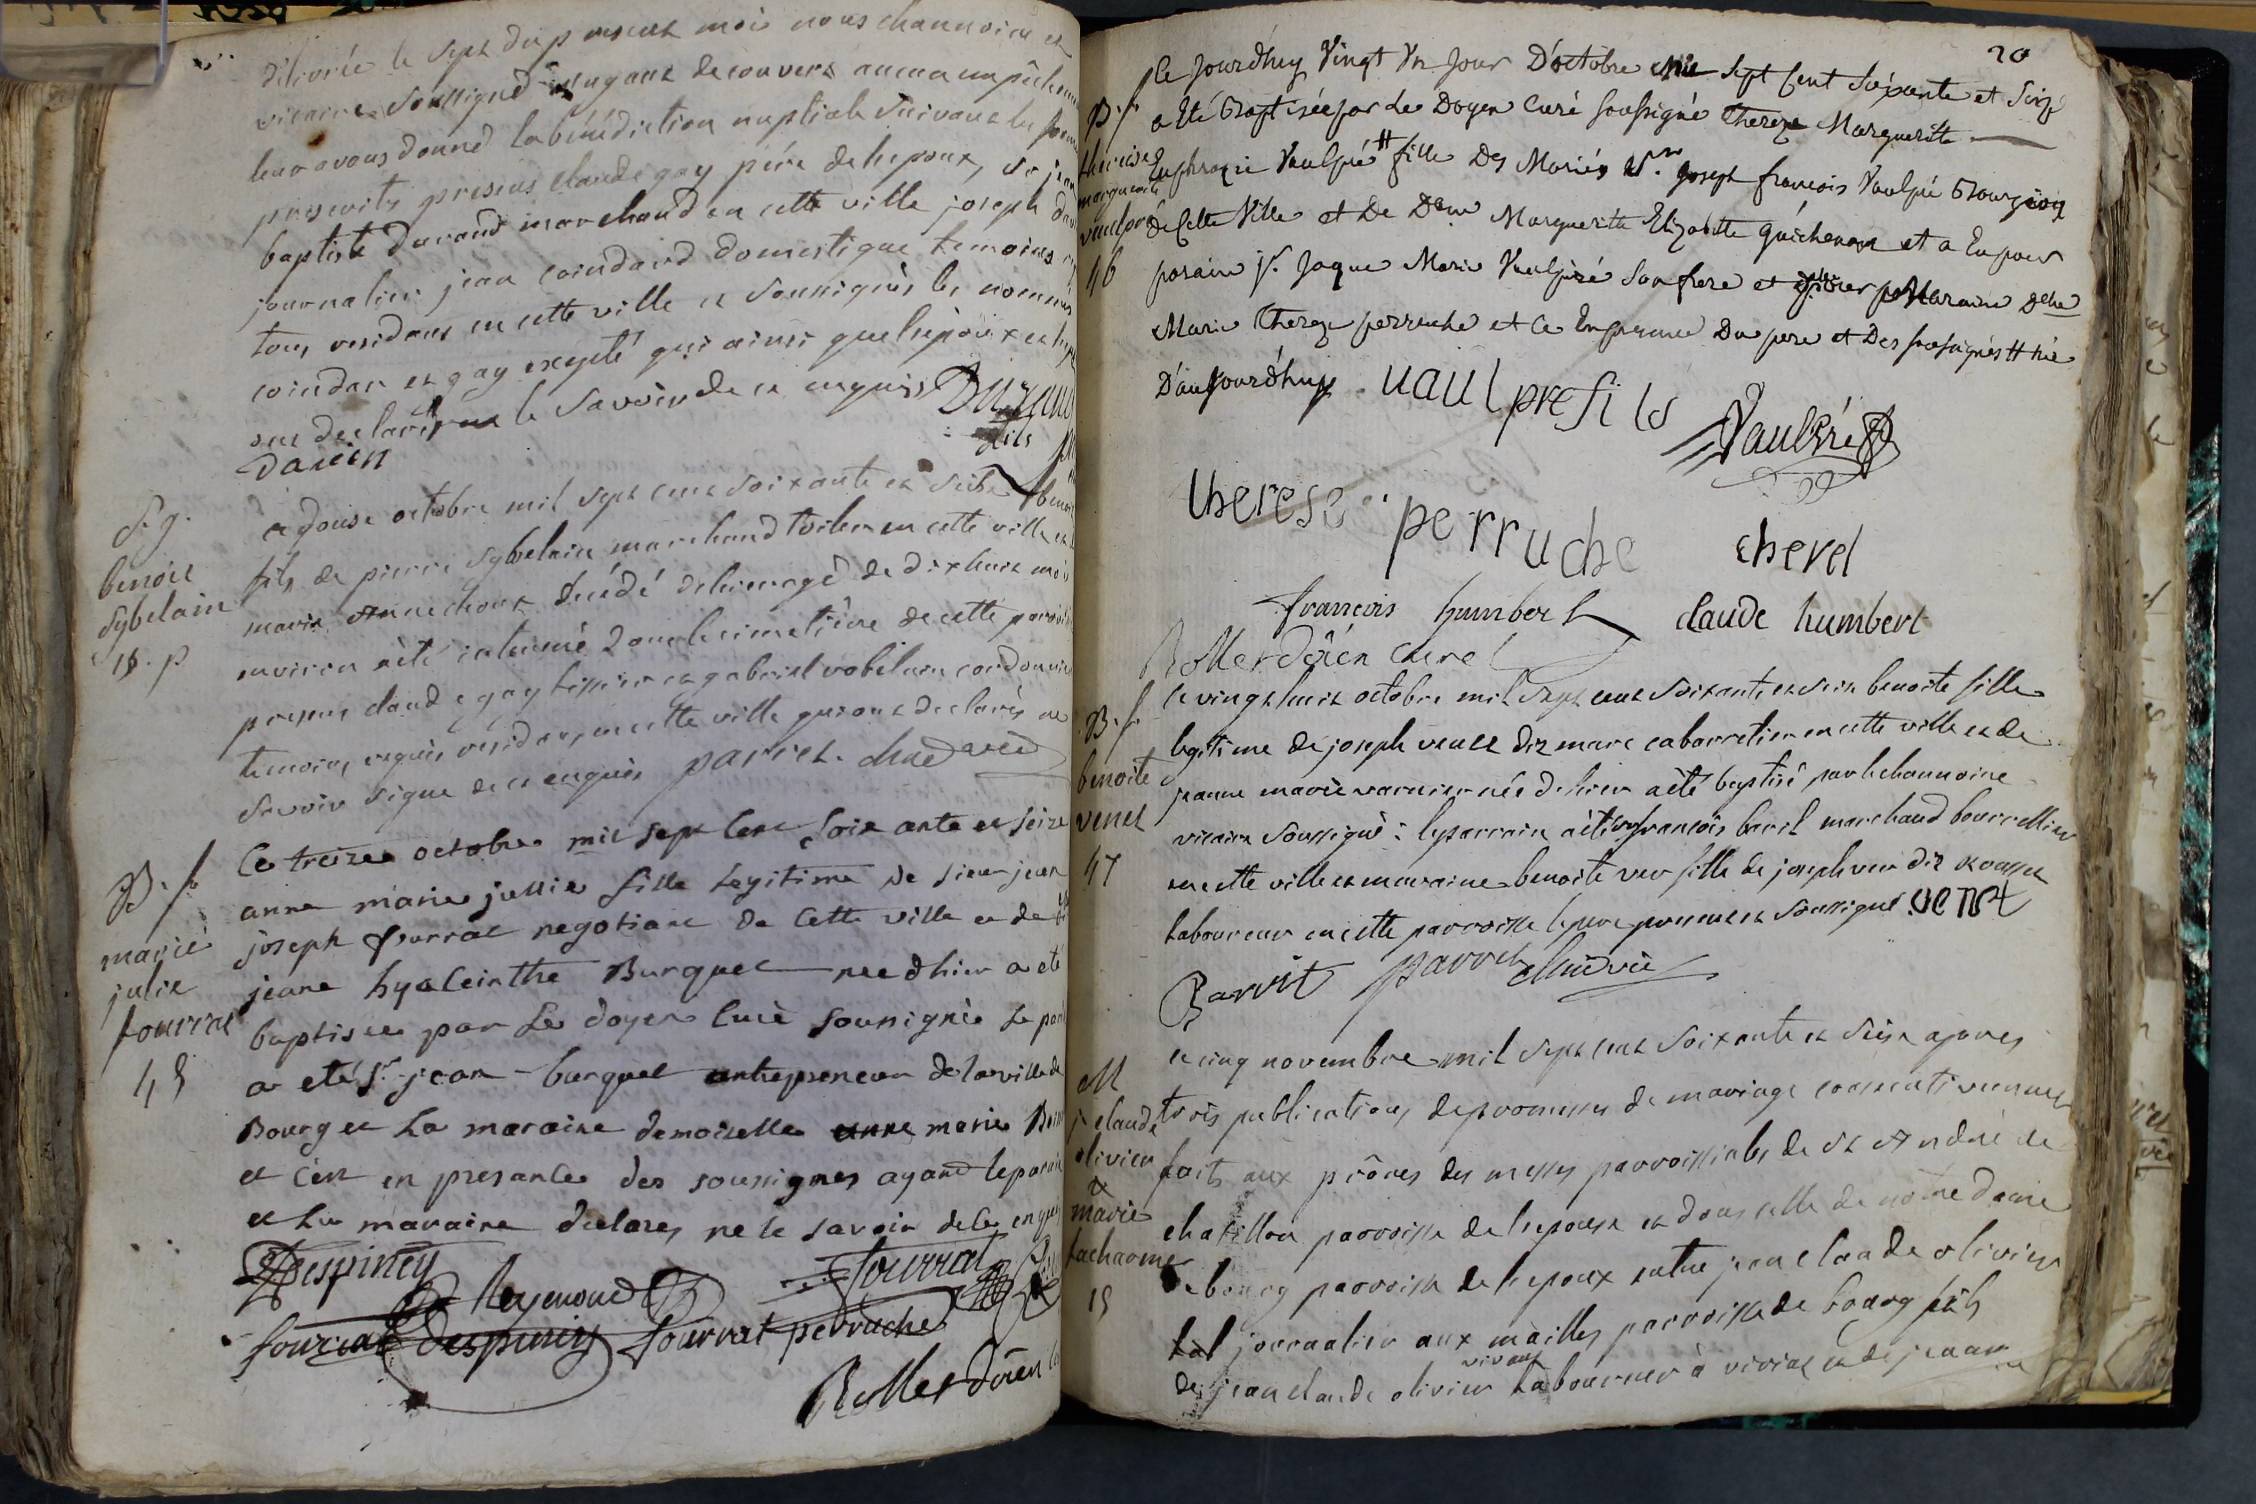 délivrée le sept du present mois nous channoine et
vicaire soussigné n'ayant decouvert aucun empêchem
leur avons donné la bénédiction nuptiale suivant les form
prescrits presens claude gay père de lepoux, sr jean
baptiste durand marchand en cette ville joseph
journalier jean coindard domestique temoins
tous residans en cette ville et soussignés les nommés
coindar et gay excepté qui ainsi que lepoux et
ont declaré le savoir de ce enquis Durand
fils
Davin
S. g.
benoit
sybelain
18. p
ce douse octobre mil sept cent soixante et seise benoit
fils de pierre sybelain marchand toilier en cette ville et
marie anne choux décédé dehier agé de dixhuit mois
environ a été inhumé dans le cimetière de cette paroisse
presens claude gay tissier et gabriel vobelain cordonnier
temoins requis résidans en cette ville qui ont declarés ne
savoir signe de ce enquis parret. ch. vic
B. f.
marie
julie
fourrat
45
Ce treize octobre mil sept cent soix ante et seize
anne marie jullie fille legitime de sieur jean
joseph fourrat negotiant de cette ville et de
jeane hyacinthe Burquet née dhier a eté
baptisée par Le doyen curé soussigné Le par
a eté sr. jean burquet entrepreneur de la ville de
Bourg et La maraine demoiselle anne marie
et c'est en presance des soussignes ayant le parain
et La maraine declares ne le savoir de ce enquis
Despiney fourrat
Reymond
fourrat despiney fourrat perruche
Rollet doïen
20
B. f.
therese
marguerite
vaulpré
46
Ce Jourd'huy Vingt Un Jour D'octobre Mil sept Cent Soixante et Seize
a Eté Baptisée par Le Doyen Curé soussigné Thereze Marguerite
Euphrazie Vaulpré # fille Des Mariés Sr. Joseph françois Vaulpré Bourgeois
de Cette Ville et De Dame Marguerite Elizabette Guichenon et a Eu pour
parain Sr. Jaque Marie Vaulpré Son frere et pour Maraine Delle
Marie Thereze perruche et Ce En presence Du pere et Des soussignés # née
D'aujourd'huy. vaulpré fils Vaulpré
therese perruche cherel
françois humbert claude humbert
Rollet doïen curé
B. f.
benoite
venet
47
le vingt huit octobre mil sept cent soixante et seise benoite fille
legitime de joseph venet dit marc cabarretier en cette ville et de
jeanne marie varnier née dehier a été baptisé par le channoine
vicaire soussigné : le parrain a été françois baril marchand bourrellier
en cette ville et marraine benoite fille de joseph dit
laboureur en cette parroisse le pere present et soussigné. venet
Baril parret ch. vic
M
j claude
olivier
&
marie
lacharme
15
le cinq novembre mil sept cent soixante et seise apres
trois publications de promesses de mariage consecutivement
faits aux prônes des messes parroissiales de st André de
chatillon parroisse de lepouse et dans celle de notre dame
de bourg parroisse de lepoux entre jean claude olivier
journalier aux mailles parroisse de bourg fils
vivant
de jean claude olivier laboureur à viriat et de jeanne